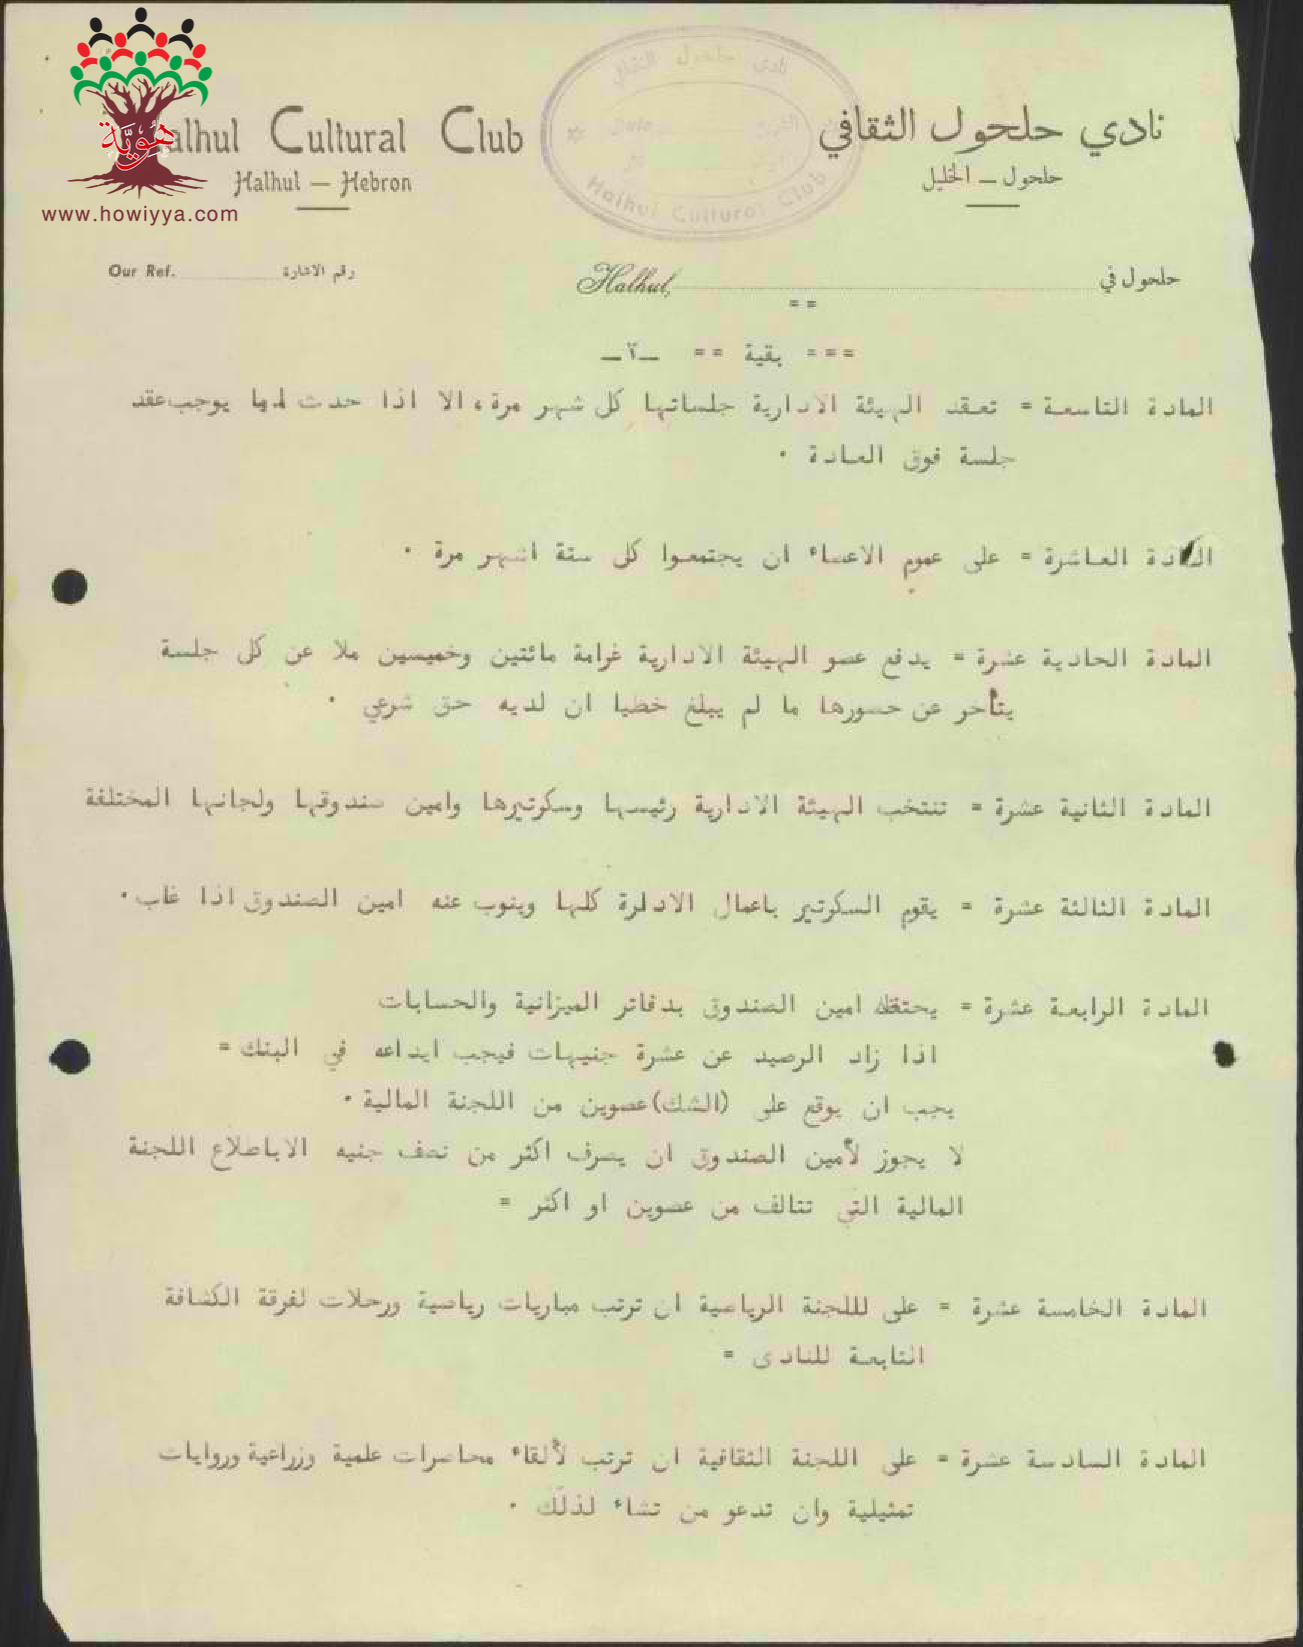 نادي حلحول الثقافي
Halhul Cultural Club
حلحول — الخليل
Halhul — Hebron
هُوِيَّة
www.howiyya.com
نادي حلحول الثقافي
Date
التاريخ
Halhul Cultural Club
Our Ref. رقم الاشارة
Halhul, حلحول في
= =
= = = بقية = = —٢—
المادة التاسعة = تعقد الهيئة الادارية جلساتها كل شهر مرة، الا اذا حدث لها يوجب عقد
جلسة فوق العادة .
المادة العاشرة = على عموم الاعضاء ان يجتمعوا كل ستة اشهر مرة .
المادة الحادية عشرة = يدفع عضو الهيئة الادارية غرامة مائتين وخميسين ملا عن كل جلسة
يتأخر عن حضورها ما لم يبلغ خطيا ان لديه حق شرعي .
المادة الثانية عشرة = تنتخب الهيئة الادارية رئيسها وسكرتيرها وامين صندوقها ولجانها المختلفة
المادة الثالثة عشرة = يقوم السكرتير باعمال الادارة كلها وينوب عنه امين الصندوق اذا غاب .
المادة الرابعة عشرة = يحتفظ امين الصندوق بدفاتر الميزانية والحسابات
اذا زاد الرصيد عن عشرة جنيهات فيجب ايداعه في البنك =
يجب ان يوقع على (الشك)عضوين من اللجنة المالية .
لا يجوز لأمين الصندوق ان يصرف اكثر من نصف جنيه الاباطلاع اللجنة
المالية التي تتالف من عضوين او اكثر =
المادة الخامسة عشرة = على لللجنة الرياضية ان ترتب مباريات رياضية ورحلات لفرقة الكشافة
التابعة للنادى =
المادة السادسة عشرة = على اللجنة الثقافية ان ترتب لألقاء محاضرات علمية وزراعية وروايات
تمثيلية وان تدعو من تشاء لذلك .